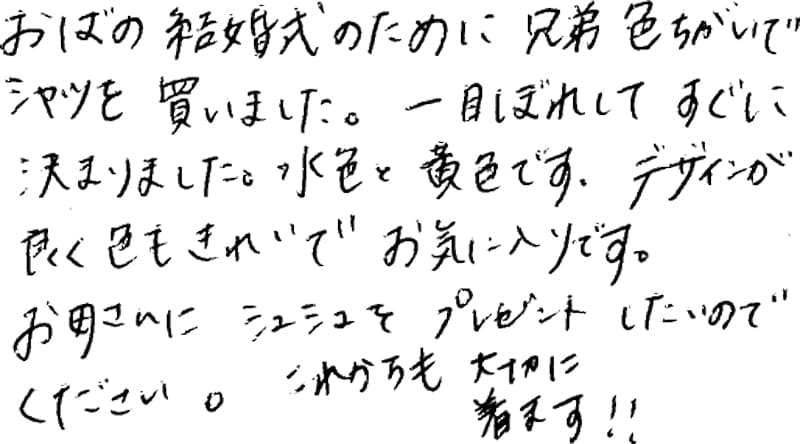 おばの結婚式のために兄弟色ちがいで
シャツを買いました。一目ぼれしてすぐに
決まりました。水色と黄色です。デザインが
良く色もきれいでお気に入りです。
お母さんにシュシュをプレゼントしたいので
ください。これからも大切に
着ます!!